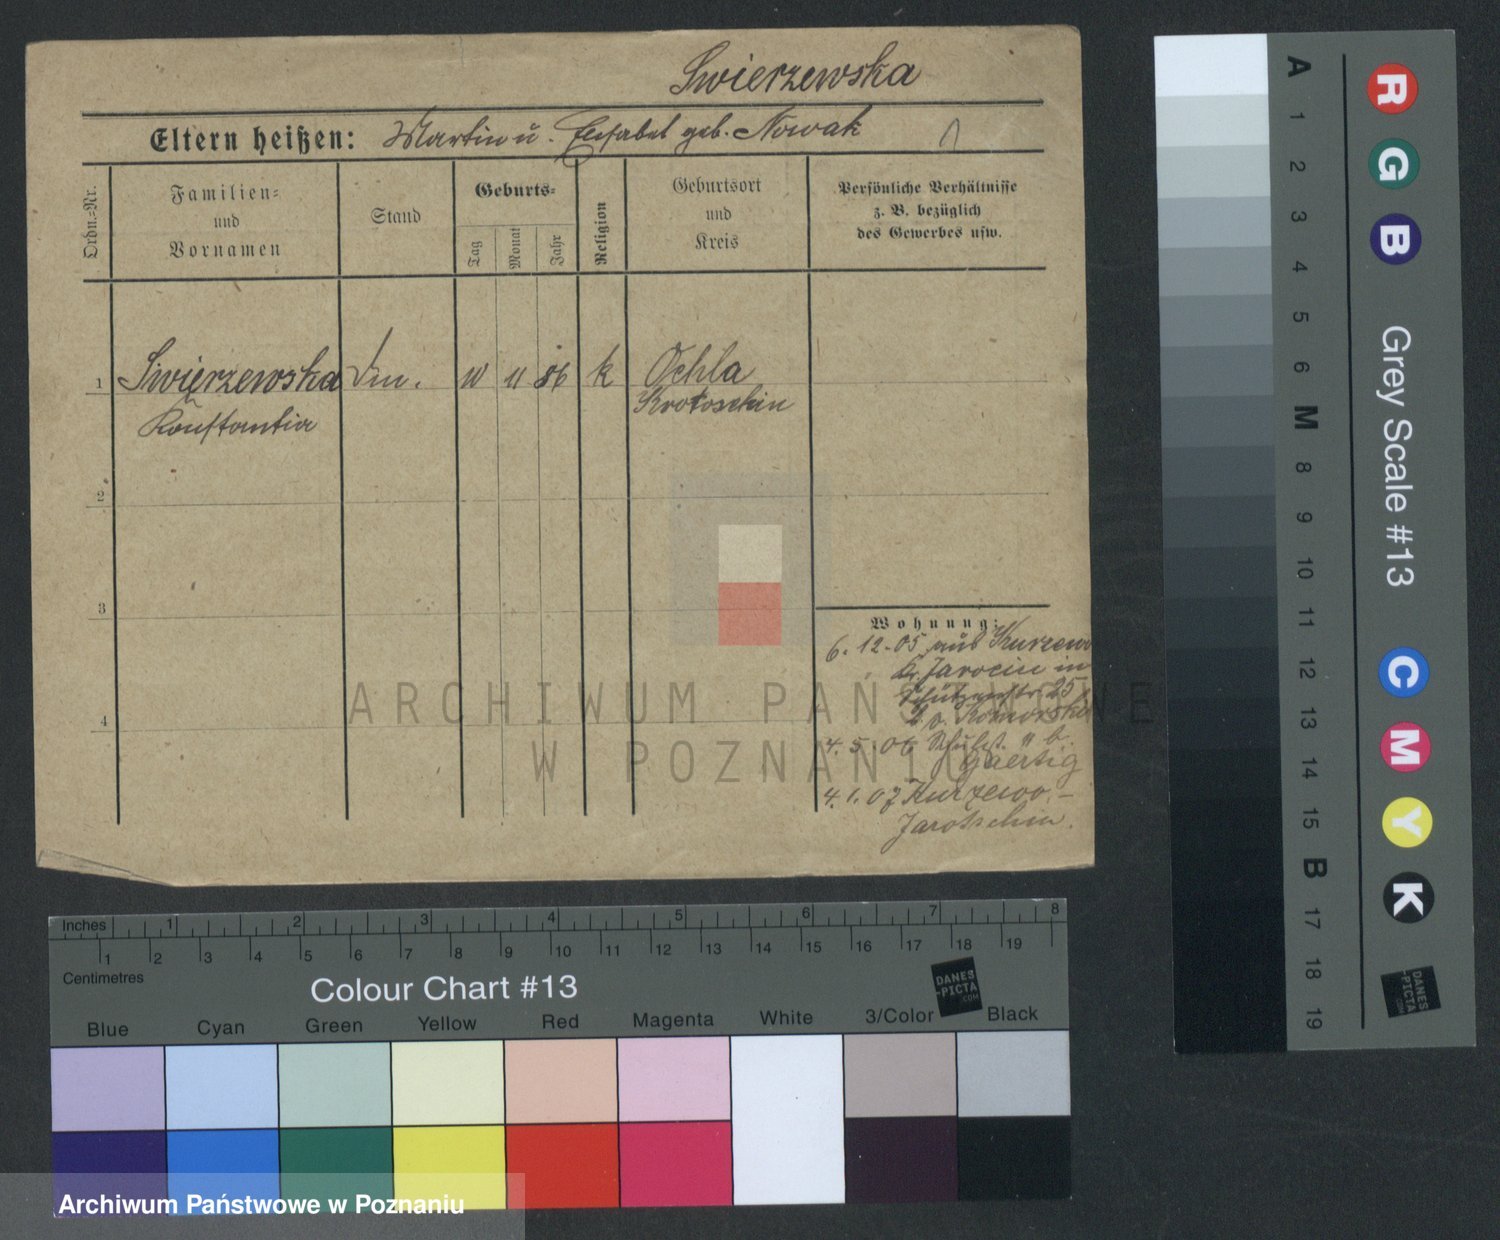 Swierzewska
Eltern heißen: Martin u. Elisabet geb. Nowak
Ordn.=Nr.
Familien=
und
Vornamen
Stand
Geburts=
Tag
Monat
Jahr
Religion
Geburtsort
und
Kreis
Persönliche Verhältnisse
z. B. bezüglich
des Gewerbes usw.
1
Swierzewska
Konstantia
11 86 k
Ochla
Krotoschin
2
3
4
Wohnung:
6. 12. 05 aus Kurzewo
Kr. Jarocin in
Schützenstr. 25
b. v. Komorski
4. 5. 06 " b.
Gaertig
4. 1. 07 Kurzewo -
Jarotschin.
ARCHIWUM PAŃSTWOWE
W POZNANIU
A 1 2 3 4 5 6 M 8 9 10 11 12 13 14 15 B 17 18 19
R G B Grey Scale #13 C M Y K
DANES
-PICTA
.COM
Inches 1 2 3 4 5 6 7 8
1 2 3 4 5 6 7 8 9 10 11 12 13 14 15 16 17 18 19
Centimetres
Colour Chart #13
DANES
-PICTA
.COM
Blue Cyan Green Yellow Red Magenta White 3/Color Black
Archiwum Państwowe w Poznaniu